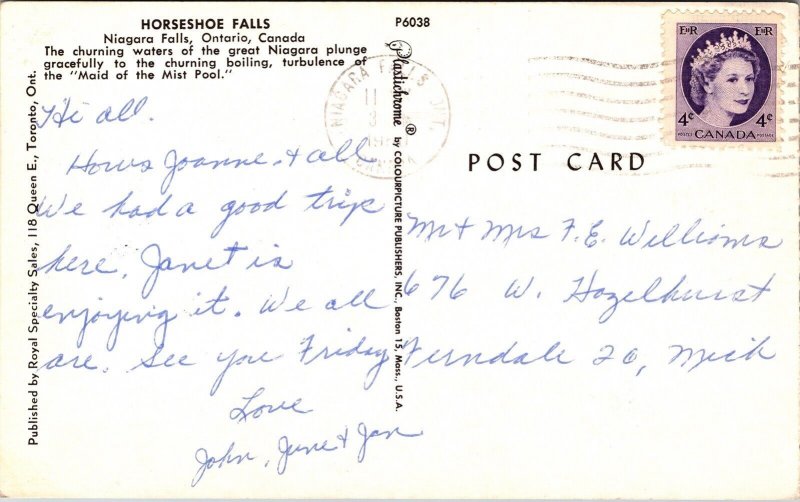 HORSESHOE FALLS
Niagara Falls, Ontario, Canada
The churning waters of the great Niagara plunge
gracefully to the churning boiling, turbulence of
the "Maid of the Mist Pool."
P6038
Published by Royal Specialty Sales, 118 Queen E., Toronto, Ont.
Plastichrome ® by COLOURPICTURE PUBLISHERS, INC., Boston 15, Mass., U.S.A.
NIAGARA FALLS ONT.
11
3
CANADA
E II R
E II R
4¢
4¢
POSTES CANADA POSTAGE
POST CARD
Hi all.
Hows Joanne & all
We had a good trip
here. Janet is
enjoying it. We all
are. See you Friday
Love
John, June & Jan
Mr & Mrs F. E. Williams
676 W. Hazelhurst
Ferndale 20, Mich